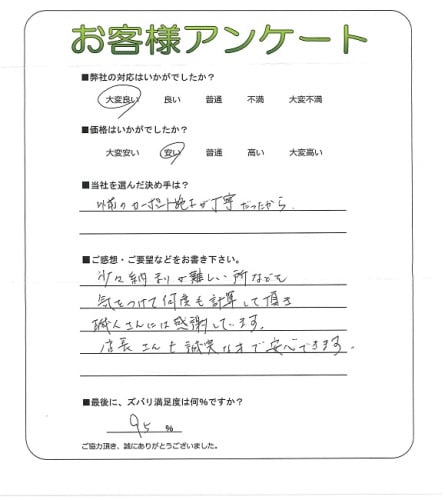 お客様アンケート
■弊社の対応はいかがでしたか？
大変良い 良い 普通 不満 大変不満
■価格はいかがでしたか？
大変安い 安い 普通 高い 大変高い
■当社を選んだ決め手は？
以前のカーポート施工が丁寧だったから。
■ご感想・ご要望などをお書き下さい。
少々納まりが難しい所なども
気をつけて何度も計算して頂き
職人さんには感謝しています。
店長さんも誠実な方で安心できます。
■最後に、ズバリ満足度は何％ですか？
95 %
ご協力頂き、誠にありがとうございました。